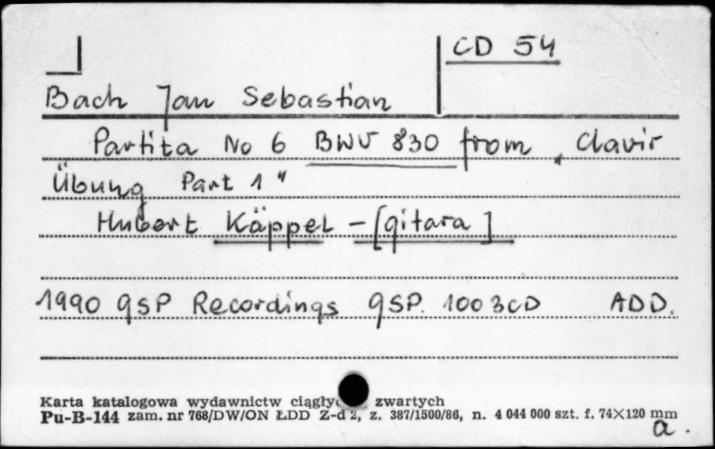 CD 54
Bach Jan Sebastian
Partita No 6 BWV 830 from „Clavir
Übung Part 1"
Hubert Käppel - [gitara]
1990 GSP Recordings GSP. 1003CD ADD.
Karta katalogowa wydawnictw zwartych
Pu-B-144 zam. nr 768/DW/ON ŁDD Z-d 2, z. 387/1500/86, n. 4 044 000 szt. f. 74×120 mm
a.